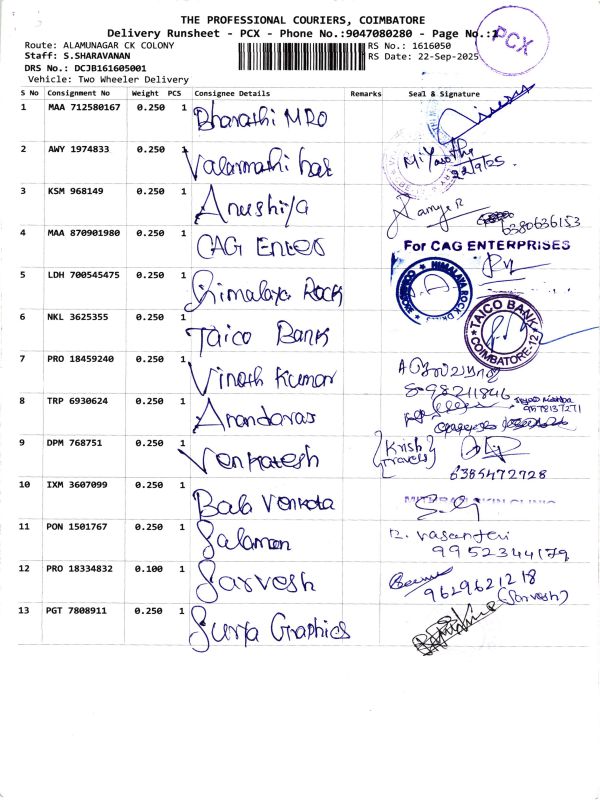 THE PROFESSIONAL COURIERS, COIMBATORE
Delivery Runsheet - PCX - Phone No.:9047080280 - Page No.:1
PCX
Route: ALAMUNAGAR CK COLONY
RS No.: 1616050
Staff: S.SHARAVANAN
RS Date: 22-Sep-2025
DRS No.: DCJB161605001
Vehicle: Two Wheeler Delivery
S No Consignment No Weight PCS Consignee Details Remarks Seal & Signature
1 MAA 712580167 0.250 1 Bharathi MRO
2 AWY 1974833 0.250 1 Valarmathi
22/9/25.
3 KSM 968149 0.250 1 Anushiya
6380636153
4 MAA 870901980 0.250 1 CAG Enter
For CAG ENTERPRISES
5 LDH 700545475 0.250 1 Himalaya Rock
HIMALAYA ROCK
COIMBATORE
6 NKL 3625355 0.250 1 Taico Bank
TAICO BANK
COIMBATORE-12
7 PRO 18459240 0.250 1 Vinoth Kumar
8 TRP 6930624 0.250 1
9 DPM 768751 0.250 1 Venkatesh
Krish Travels
6385472728
10 IXM 3607099 0.250 1 Bala
SKIN CLINIC
11 PON 1501767 0.250 1 Salamon
R. Vasanteri
9952344179
12 PRO 18334832 0.100 1 Sarvesh
9629621218
(Sarvesh)
13 PGT 7808911 0.250 1 Surya Graphics